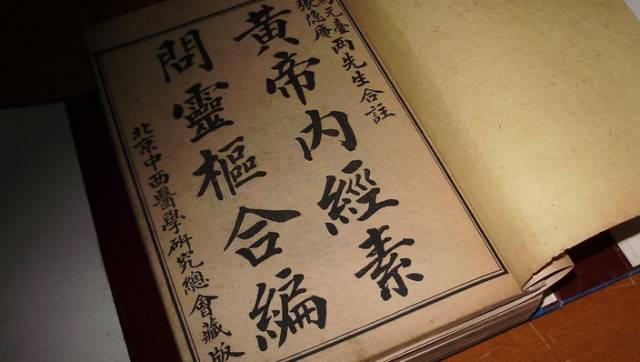 馬元臺
張隱庵
两先生合註
黃帝內經素
問靈樞合編
北京中西醫學研究總會藏版